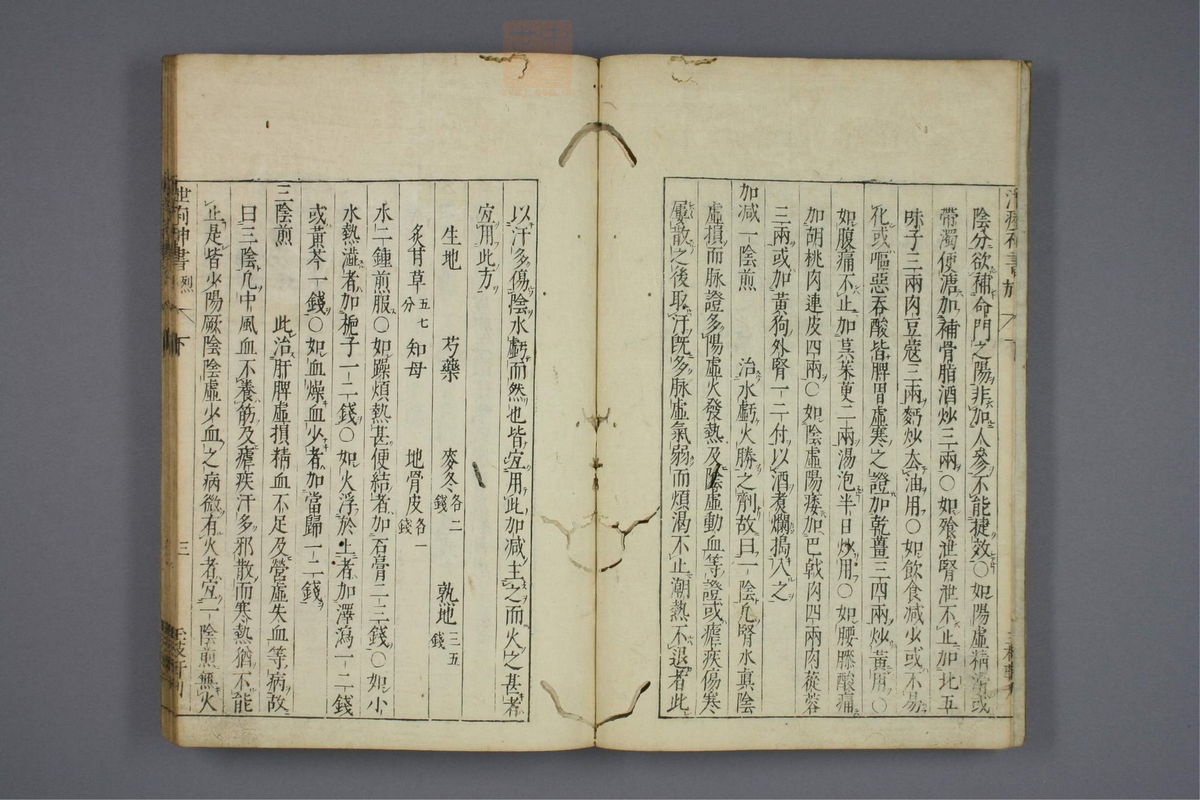 陰分欲補命門之陽非加人參不能捷效○如陽虛精滑或
帶濁便溏加補骨脂酒炒三兩○如飱泄腎泄不止加北五
味子三兩肉豆蔻三兩麪炒去油用○如飲食減少或不易
化或嘔惡吞酸皆脾胃虛寒之證加乾薑三四兩炒黃用○
如腹痛不止加吳茱萸二兩湯泡半日炒用○如腰膝酸痛
加胡桃肉連皮四兩○如陰虛陽痿加巴戟肉四兩肉蓯蓉
三兩或加黃狗外腎一二付以酒煮爛搗入之
加減一陰煎 治水虧火勝之劑故曰一陰凡腎水真陰
虛損而脉證多陽虛火發熱及陰虛動血等證或瘧疾傷寒
屢散之後取汗旣多脉虛氣弱而煩渴不止潮熱不退者此
以汗多傷陰水虧而然也皆宜用此加減主之而火之甚者
宜用此方
生地 芍藥 麥冬各二錢 熟地三五錢
炙甘草五七分 知母 地骨皮各一錢
水二鍾煎服○如躁煩熱甚便結者加石膏二三錢○如小
水熱澁者加梔子一二錢○如火浮於上者加澤瀉一二錢
或黃芩一錢○如血燥血少者加當歸一二錢
三陰煎 此治肝脾虛損精血不足及營虛失血等病故
曰三陰凡中風血不養筋及瘧疾汗多邪散而寒熱猶不能
止是皆少陽厥陰陰虛少血之病微有火者宜一陰煎無火
神書 烈 下 三